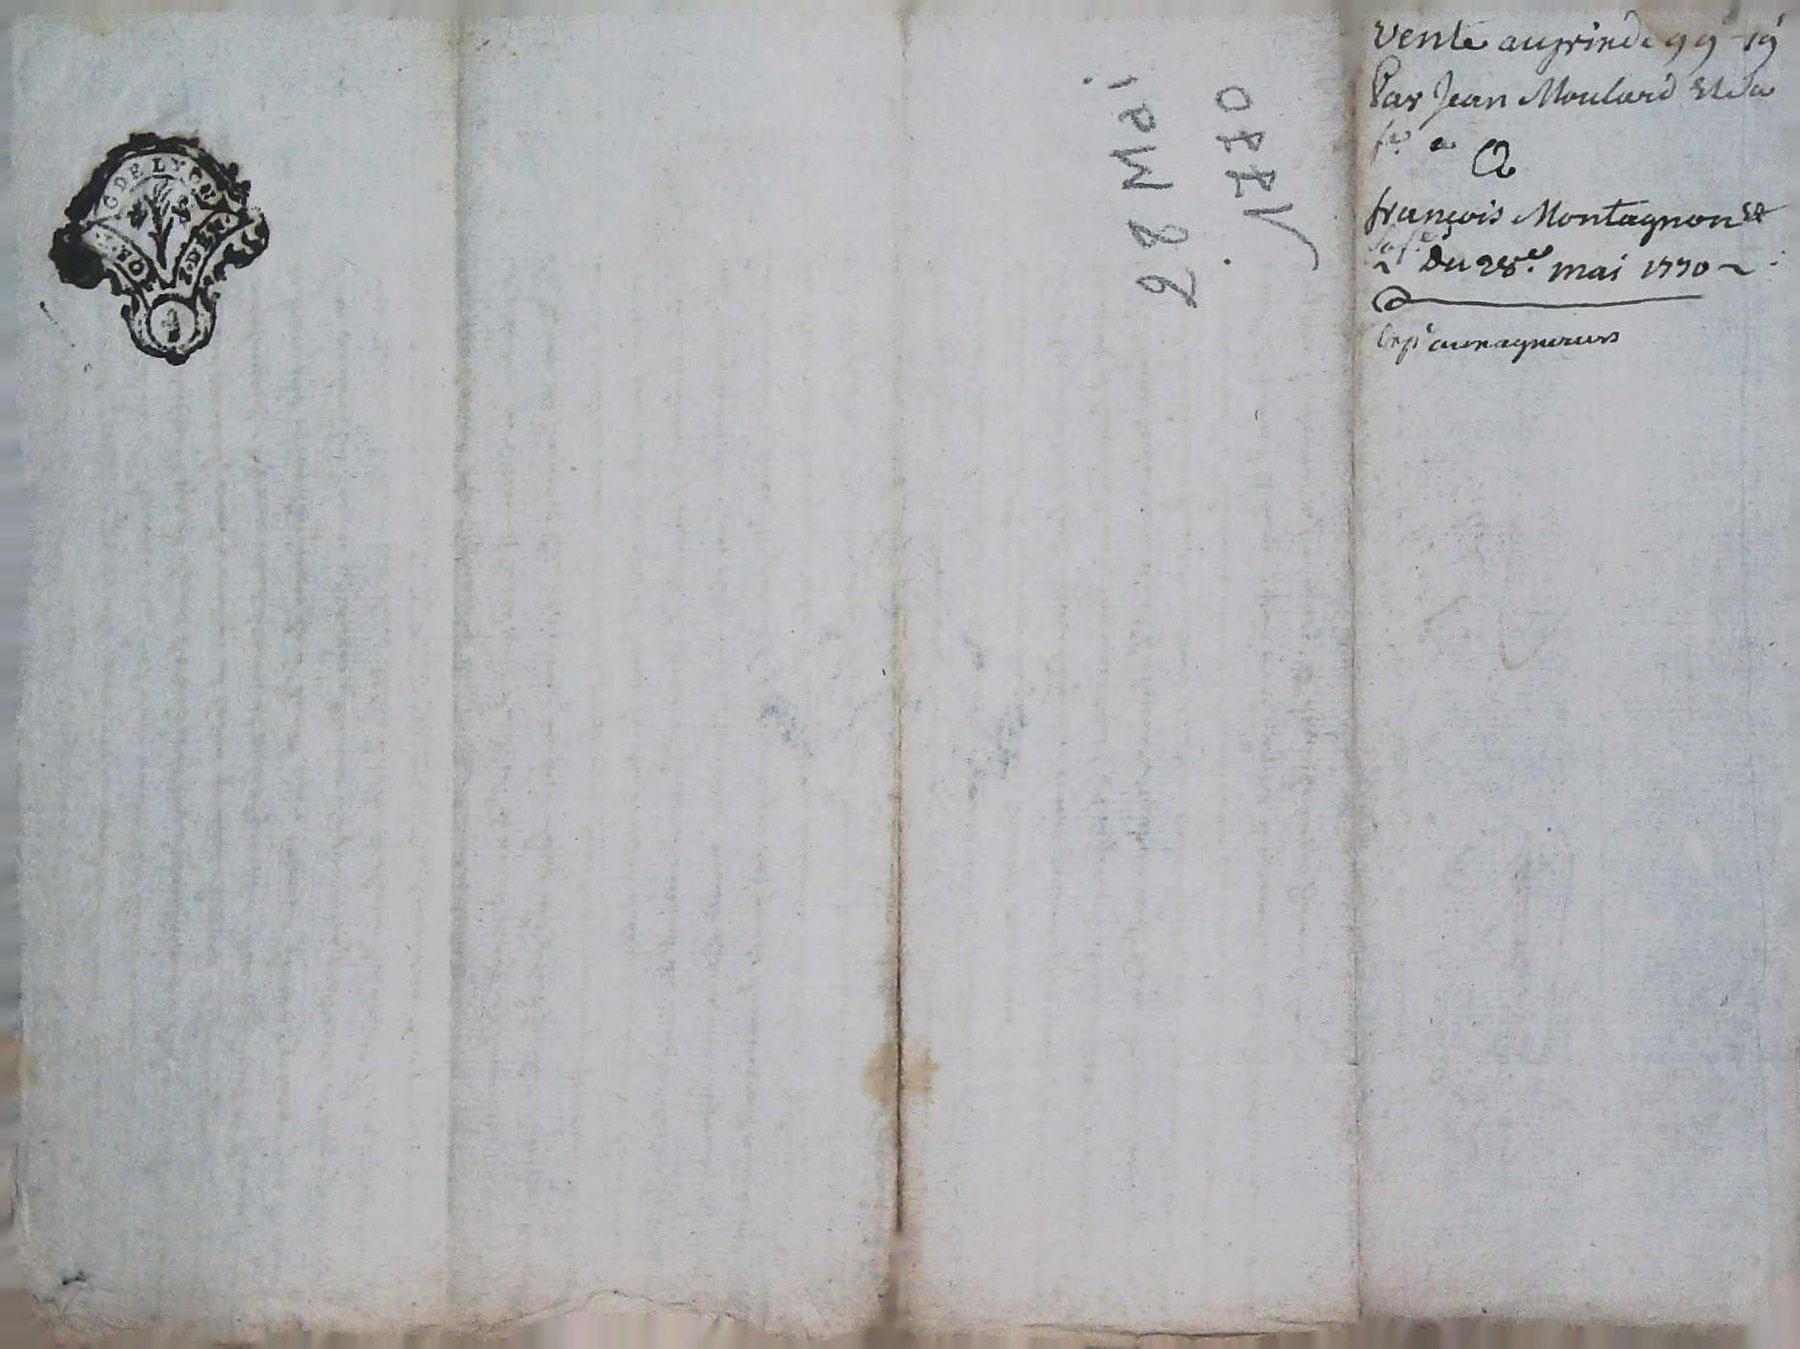 G. DE LYON
vente au prix de 99 19
Par Jean Moulard Et Sa
fe. a
françois Montagnon Et
Sa fe.
Du 28e. mai 1770
Expn aux acquereurs
28 Mai
1770